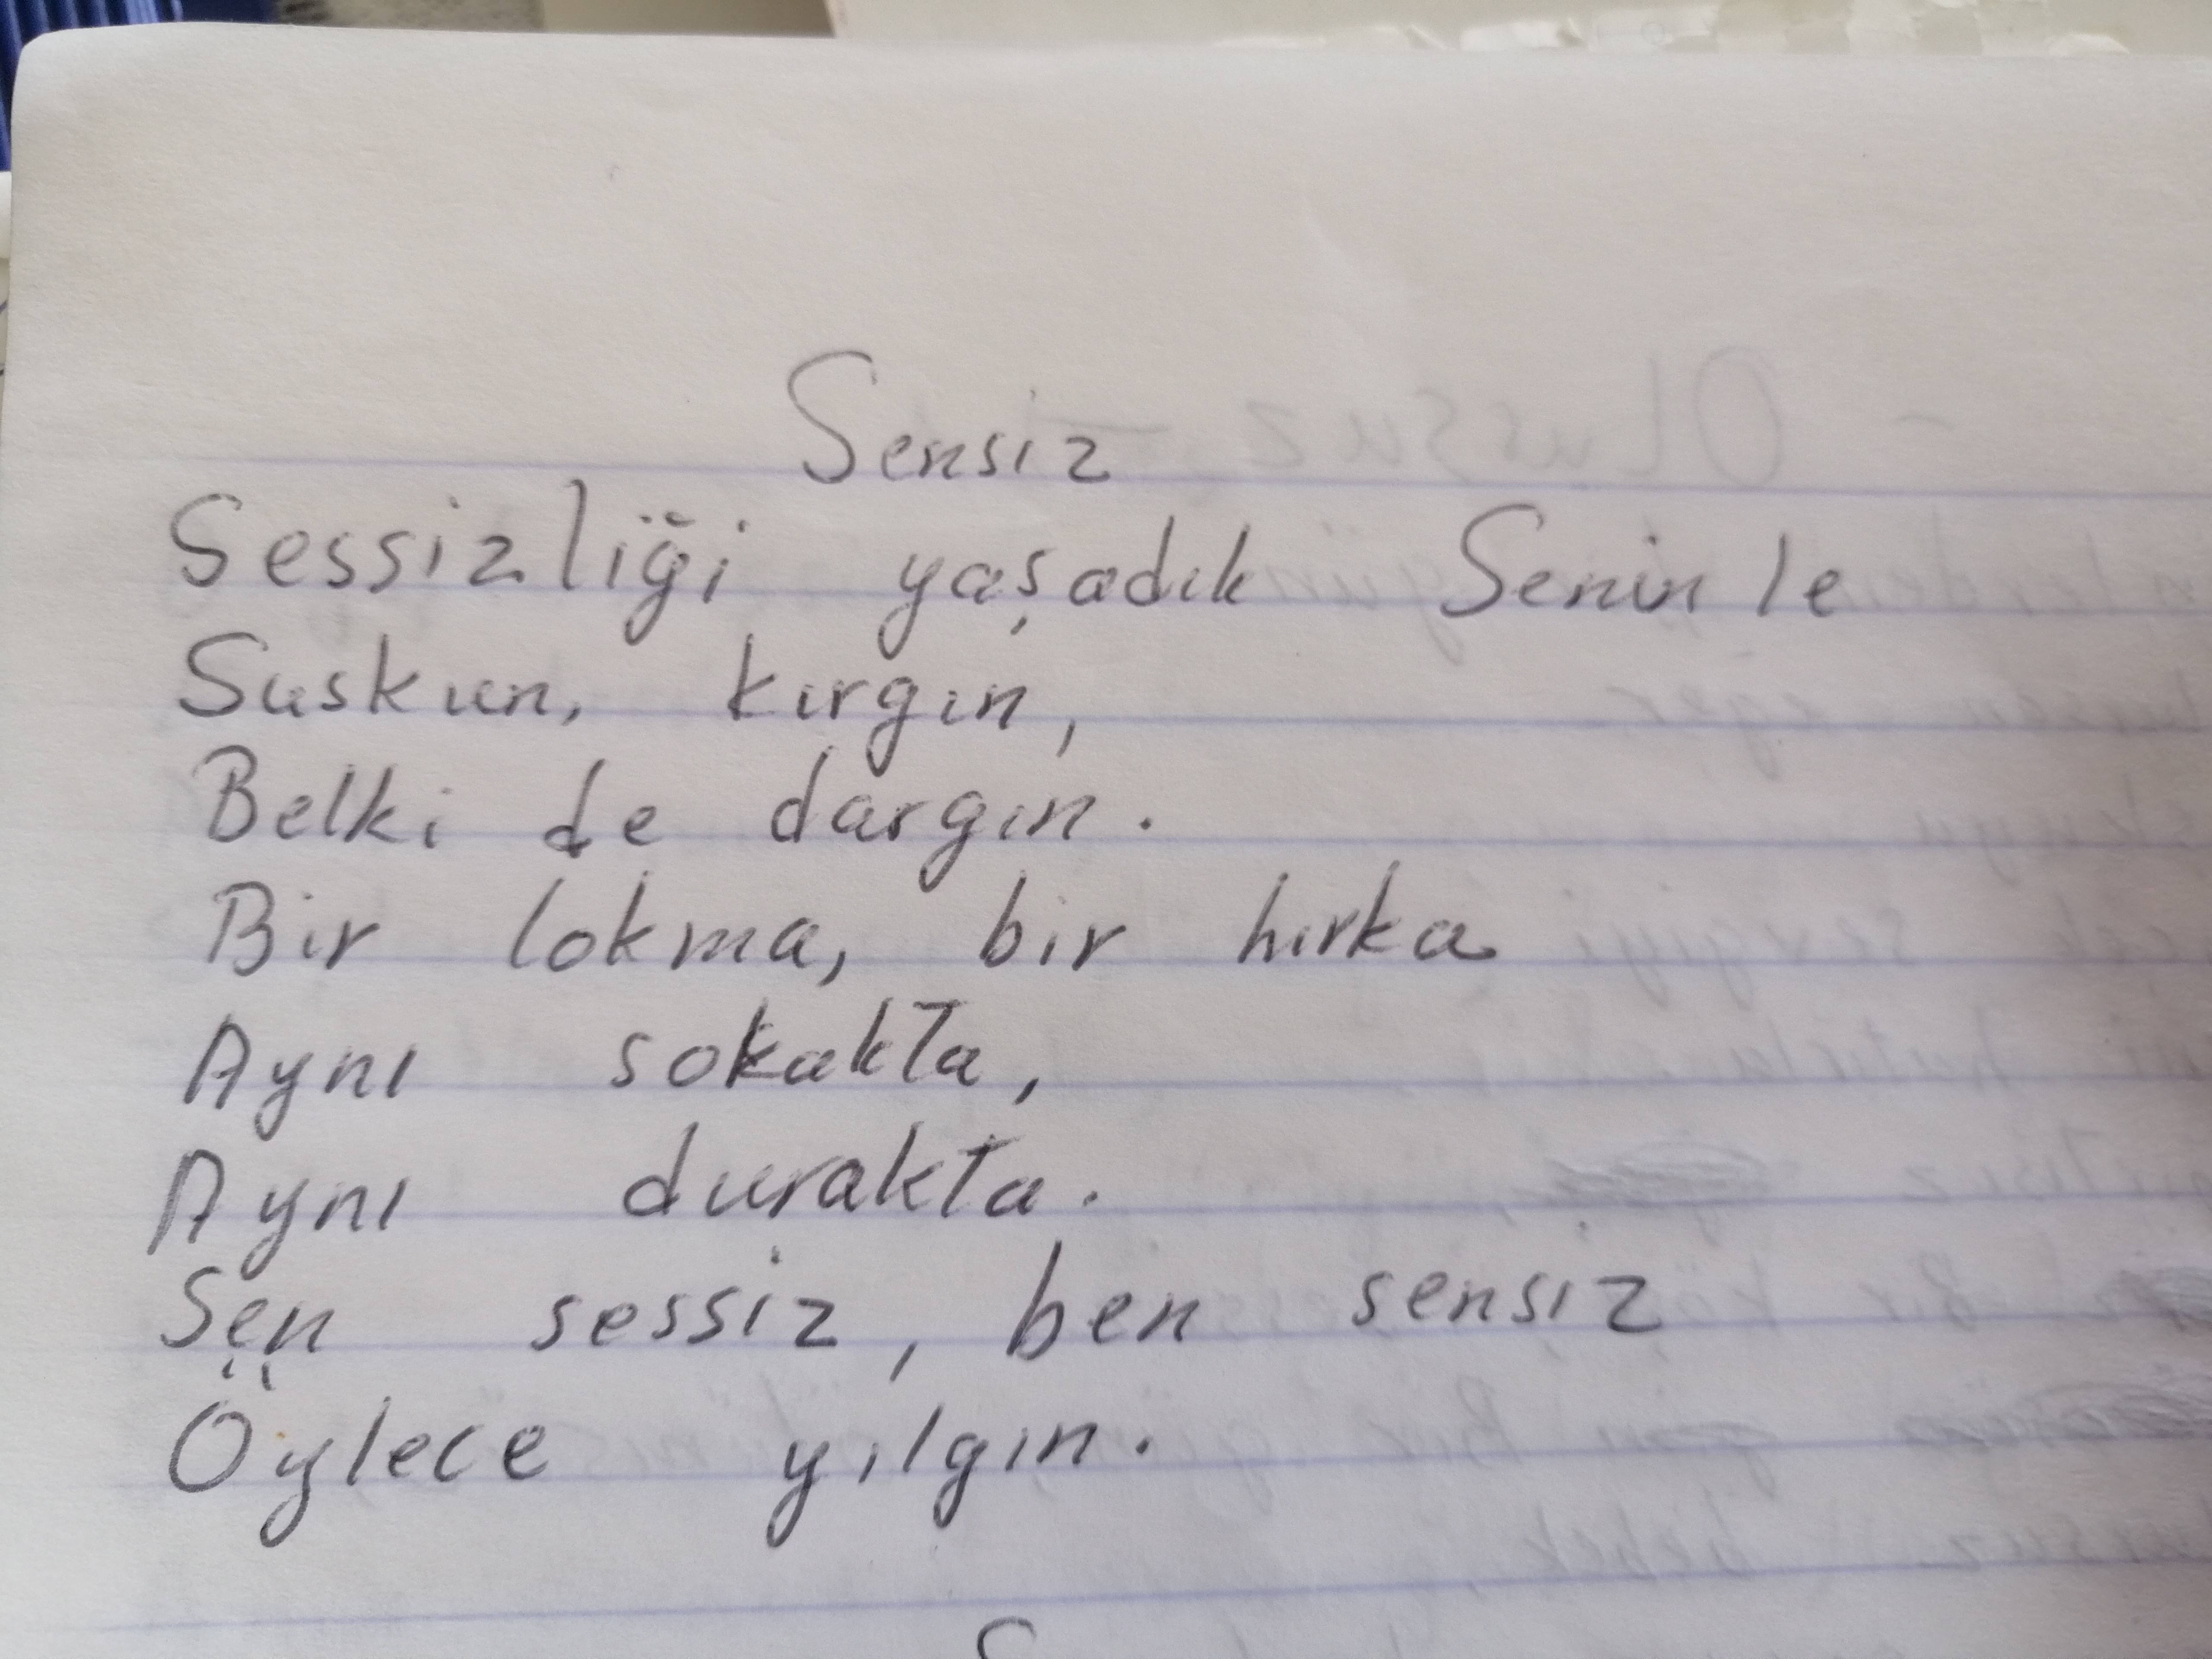 Sensiz
Sessizliği yaşadık Seninle
Suskun, kırgın,
Belki de dargın.
Bir lokma, bir hırka
Aynı sokakta,
Aynı durakta.
Sen sessiz, ben sensiz
Öylece yılgın.